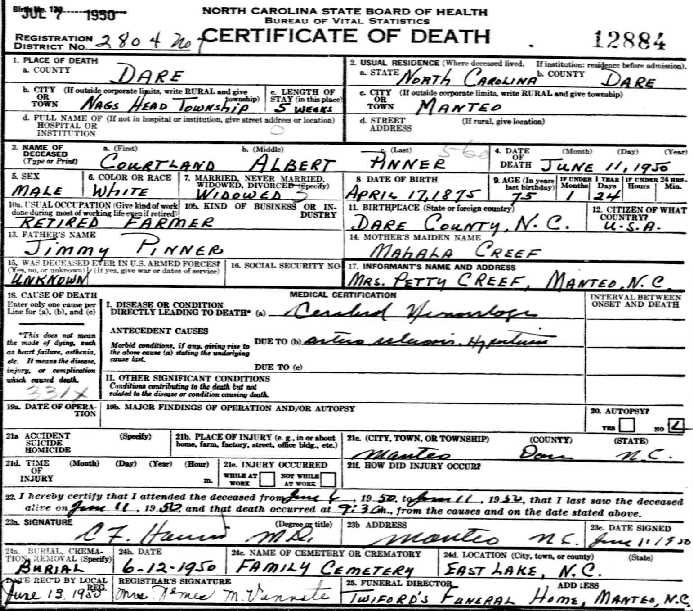 JUL 7 1950
NORTH CAROLINA STATE BOARD OF HEALTH
BUREAU OF VITAL STATISTICS
REGISTRATION DISTRICT NO. 2804 CERTIFICATE OF DEATH 12884
1. PLACE OF DEATH
a. COUNTY DARE
2. USUAL RESIDENCE (Where deceased lived. If institution: residence before admission).
a. STATE NORTH CAROLINA b. COUNTY DARE
b. CITY (If outside corporate limits, write RURAL and give township) OR TOWN NAGS HEAD TOWNSHIP
c. LENGTH OF STAY (in this place) 5 WEEKS
c. CITY (If outside corporate limits, write RURAL and give township) OR TOWN MANTEO
d. FULL NAME OF (If not in hospital or institution, give street address or location) HOSPITAL OR INSTITUTION
d. STREET ADDRESS (If rural, give location)
3. NAME OF DECEASED (Type or Print)
a. (First) COURTLAND b. (Middle) ALBERT c. (Last) PINNER
4. DATE OF DEATH (Month) (Day) (Year) JUNE 11, 1950
5. SEX MALE
6. COLOR OR RACE WHITE
7. MARRIED, NEVER MARRIED, WIDOWED, DIVORCED (Specify) WIDOWED 3
8 DATE OF BIRTH APRIL 17, 1875
9. AGE (In years last birthday) 75 IF UNDER 1 YEAR Months 1 Days 24 IF UNDER 24 HRS. Hours Min.
10a. USUAL OCCUPATION (Give kind of work done during most of working life even if retired) RETIRED FARMER
10b. KIND OF BUSINESS OR INDUSTRY
11. BIRTHPLACE (State or foreign country) DARE COUNTY, N.C.
12. CITIZEN OF WHAT COUNTRY? U.S.A.
13. FATHER'S NAME JIMMY PINNER
14. MOTHER'S MAIDEN NAME MAHALA CREEF
15. WAS DECEASED EVER IN U.S. ARMED FORCES? (Yes, no, or unknown) (If yes, give war or dates of service) UNKNOWN
16. SOCIAL SECURITY NO.
17. INFORMANT'S NAME AND ADDRESS MRS. PETTY CREEF, MANTEO, N.C.
18. CAUSE OF DEATH
Enter only one cause per line for (a), (b), and (c)
*This does not mean the mode of dying, such as heart failure, asthenia, etc. It means the disease, injury, or complication which caused death.
331X
MEDICAL CERTIFICATION
INTERVAL BETWEEN ONSET AND DEATH
I. DISEASE OR CONDITION DIRECTLY LEADING TO DEATH* (a) Cerebral Hemorrhage
ANTECEDENT CAUSES
Morbid conditions, if any, giving rise to the above cause (a) stating the underlying cause last.
DUE TO (b) arterio sclerosis, Hypertension
DUE TO (c)
II. OTHER SIGNIFICANT CONDITIONS
Conditions contributing to the death but not related to the disease or condition causing death.
19a. DATE OF OPERATION
19b. MAJOR FINDINGS OF OPERATION AND/OR AUTOPSY
20. AUTOPSY? YES NO
21a ACCIDENT SUICIDE HOMICIDE (Specify)
21b. PLACE OF INJURY (e.g., in or about home, farm, factory, street, office bldg., etc.)
21c. (CITY, TOWN, OR TOWNSHIP) (COUNTY) (STATE)
Manteo Dare N.C.
21d. TIME OF INJURY (Month) (Day) (Year) (Hour) m.
21e. INJURY OCCURRED WHILE AT WORK NOT WHILE AT WORK
21f. HOW DID INJURY OCCUR?
22. I hereby certify that I attended the deceased from June 6, 1950, to June 11, 1950, that I last saw the deceased
alive on June 11, 1950 and that death occurred at m., from the causes and on the date stated above.
23a. SIGNATURE (Degree or title) M.D.
23b ADDRESS Manteo N.C.
23c. DATE SIGNED June 11 1950
24a. BURIAL, CREMATION, REMOVAL (Specify) BURIAL
24b. DATE 6-12-1950
24c. NAME OF CEMETERY OR CREMATORY FAMILY CEMETERY
24d. LOCATION (City, town, or county) (State) EAST LAKE, N.C.
DATE REC'D BY LOCAL REG. June 13, 1950
REGISTRAR'S SIGNATURE Mrs.
25. FUNERAL DIRECTOR ADDRESS
TWIFORD'S FUNERAL HOME, MANTEO, N.C.